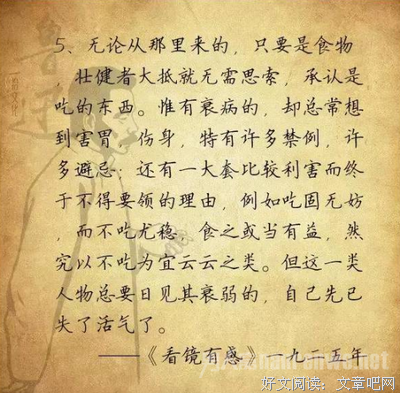 5、无论从那里来的，只要是食物
，壮健者大抵就无需思索，承认是
吃的东西。惟有衰病的，却总常想
到害胃，伤身，特有许多禁例，许
多避忌；还有一大套比较利害而终
于不得要领的理由，例如吃固无妨
，而不吃尤稳 食之或当有益，然
究以不吃为宜云云之类。但这一类
人物总要日见其衰弱的，自己先已
失了活气了。
——《看镜有感》 九 五年
好文阅读：文章吧网